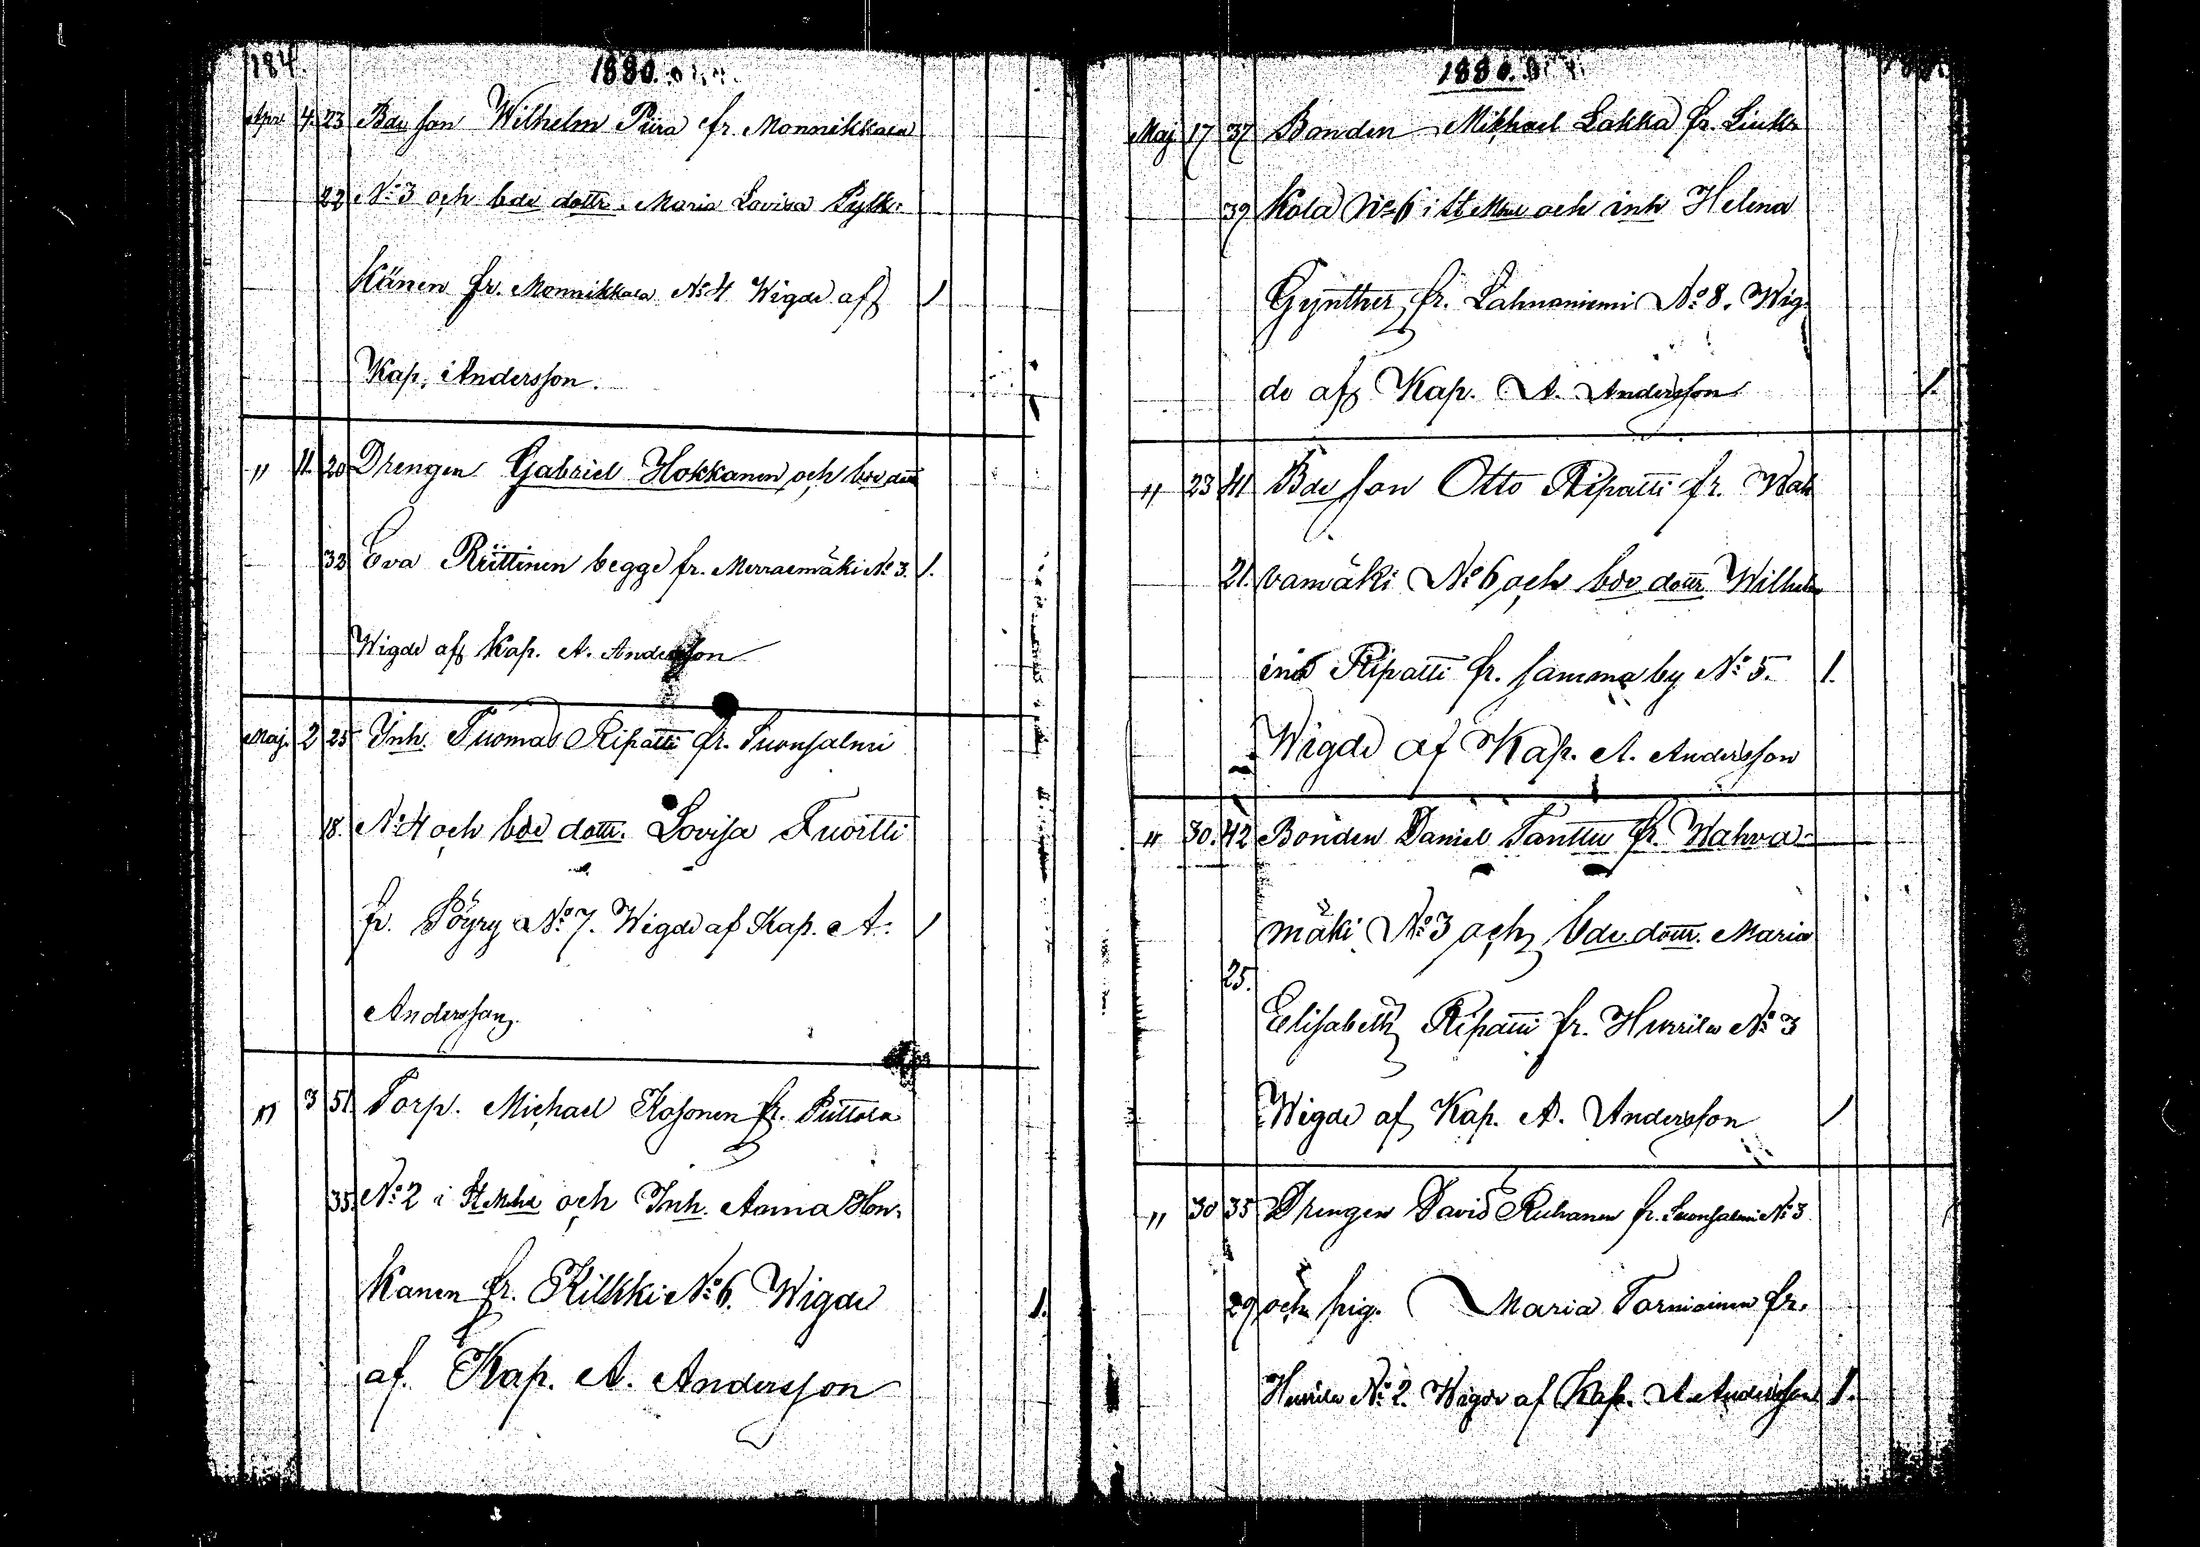 184.
1880.
Apr. 4. 23 Bde son Wilhelm Piira fr. Monnikkala
22 No 3 och bde dottr. Maria Lovisa Pylk-
känen fr. Monnikkala No 4 Wigde af 1
Kap. Andersson.
" 11. 20 Drengen Gabriel Hokkanen och bde dottr
32 Eva Reittinen begge fr. Merraemäki No 3. 1.
Wigde af Kap. A. Andersson
Maj. 2 25 Inh. Tuomas Ripatti fr. Suonsalmi
18. No 4 och bde dottr. Lovisa Tuortti
fr. Pöyry No 7. Wigde af Kap. A. 1
Andersson.
" 3 51 Torp. Michael Kosonen fr. Puttola
35 No 2 i St. Michel och Inh. Anna Hon-
kanen fr. Kilkki No 6. Wigde 1.
af Kap. A. Andersson
1880.
Maj 17 37 Bonden Mikhael Lakka fr. Liuk-
39 kola No 6 i St Mhel och inh Helena
Gynther fr. Lahnaniemi No 8. Wig-
de af Kap. A. Andersson 1.
" 23 41 Bde son Otto Ripatti fr. Wah
21. vamäki No 6 och bde dottr Wilhelm
ina Ripatti fr. samma by No 5. 1.
Wigde af Kap. A. Andersson
" 30. 42 Bonden Daniel Tanttu fr. Wahva-
mäki No 3 och bde. dottr. Maria
25. Elisabeth Ripatti fr. Hurrila No 3
Wigde af Kap. A. Andersson 1
" 30 35 Drengen David Reuhanen fr. Suonsalmi No 3
29 och pig. Maria Torniainen fr.
Hurrila No 2. Wigde af Kap. A. Andersson 1.